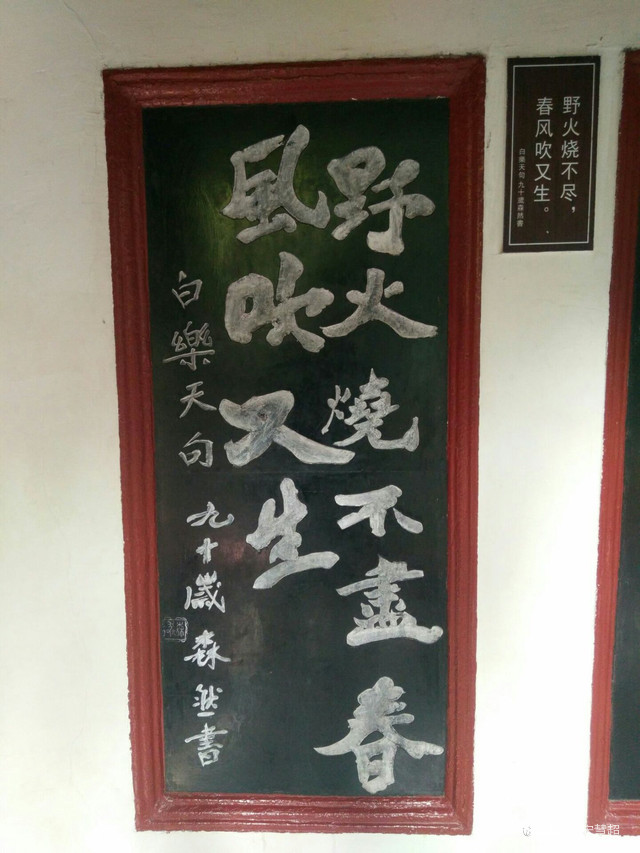 野火燒不盡春
風吹又生
白樂天句 九十歲森然書
野火烧不尽，
春风吹又生。
白樂天句 九十歲森然書